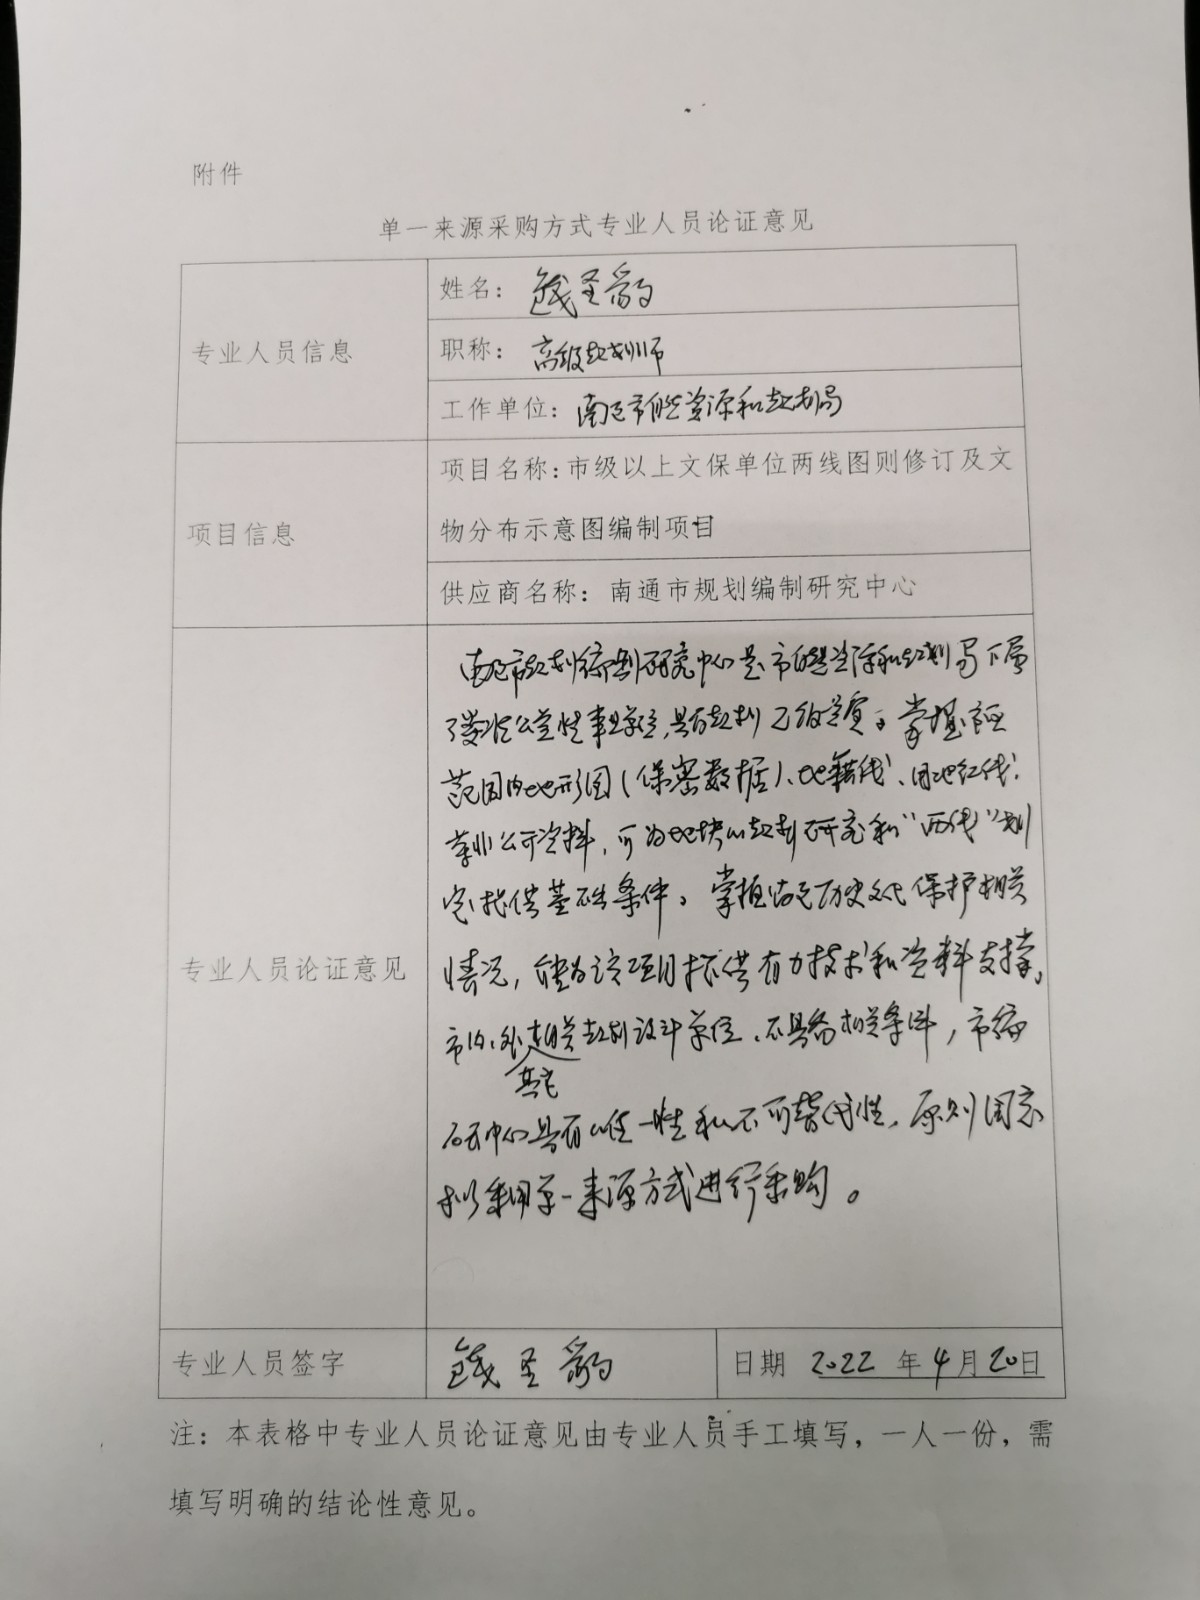 附件
单一来源采购方式专业人员论证意见
专业人员信息
姓名：钱圣豹
职称：高级规划师
工作单位：南通市自然资源和规划局
项目信息
项目名称：市级以上文保单位两线图则修订及文
物分布示意图编制项目
供应商名称：南通市规划编制研究中心
专业人员论证意见
南通市规划编制研究中心是市自然资源和规划局下属
公益性事业单位，具有规划乙级资质，掌握市区
范围内地形图（保密数据）、地籍线、用地红线、
非公开资料，可为地块的规划研究和“两线”划
定提供基础条件。掌握南通历史文化保护相关
情况，能为该项目提供有力技术和资料支撑，
市内、外其它相关规划设计单位、不具备相关条件，市编
研中心具有唯一性和不可替代性，原则同意
拟采用单一来源方式进行采购。
专业人员签字
钱圣豹
日期 2022年4月20日
注：本表格中专业人员论证意见由专业人员手工填写，一人一份，需
填写明确的结论性意见。